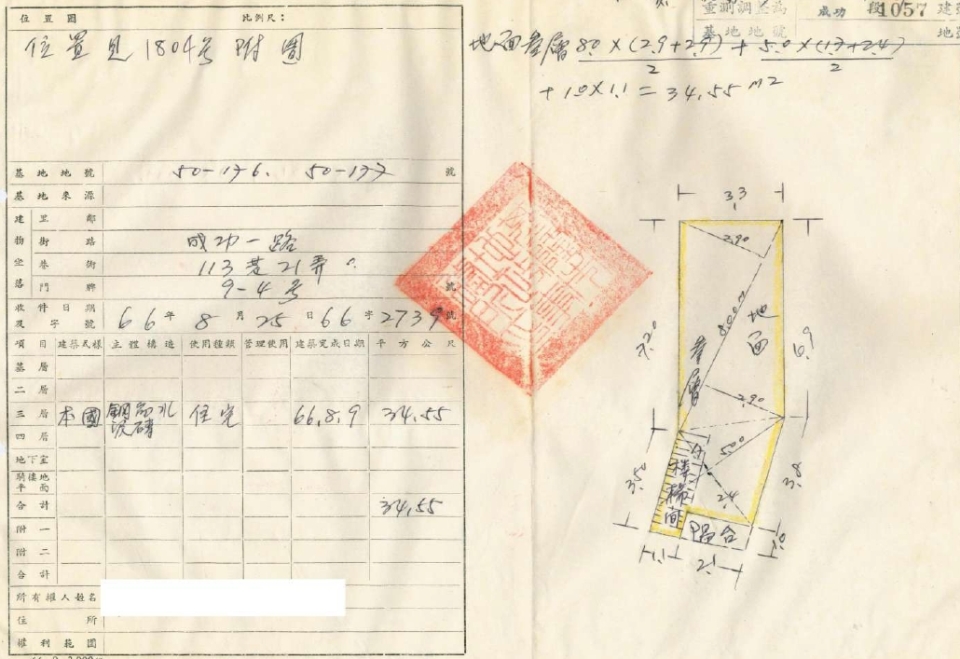 位置圖 比例尺：
位置見1804号附圖
基地地號 50-176. 50-177 號
基地來源
建物坐落
里鄰
街路 成功一路
巷街 113巷21弄
門牌 9-4号 號
收件日期及字號 66年8月25日66字2739號
項目 建築式樣 主體構造 使用種類 管理使用 建築完成日期 平方公尺
基層
二層
三層 本國 鋼筋水泥磚 住宅 66.8.9 34.55
四層
地下室
騎樓地平面
合計 34.55
附一
附二
合計
所有權人姓名
住所
權利範圍
成功 段 1057 建
基地地號 地
地面叁層 8.0×(2.9+2.9)/2 + 5.0×(1.7+2.4)/2
+1.0×1.1=34.55 m2
3.3
2.90
8.00
地面
叁層
7.20
6.9
2.90
5.00
3.50
樓梯間
2.4
3.8
陽台
1.0
1.1
2.1